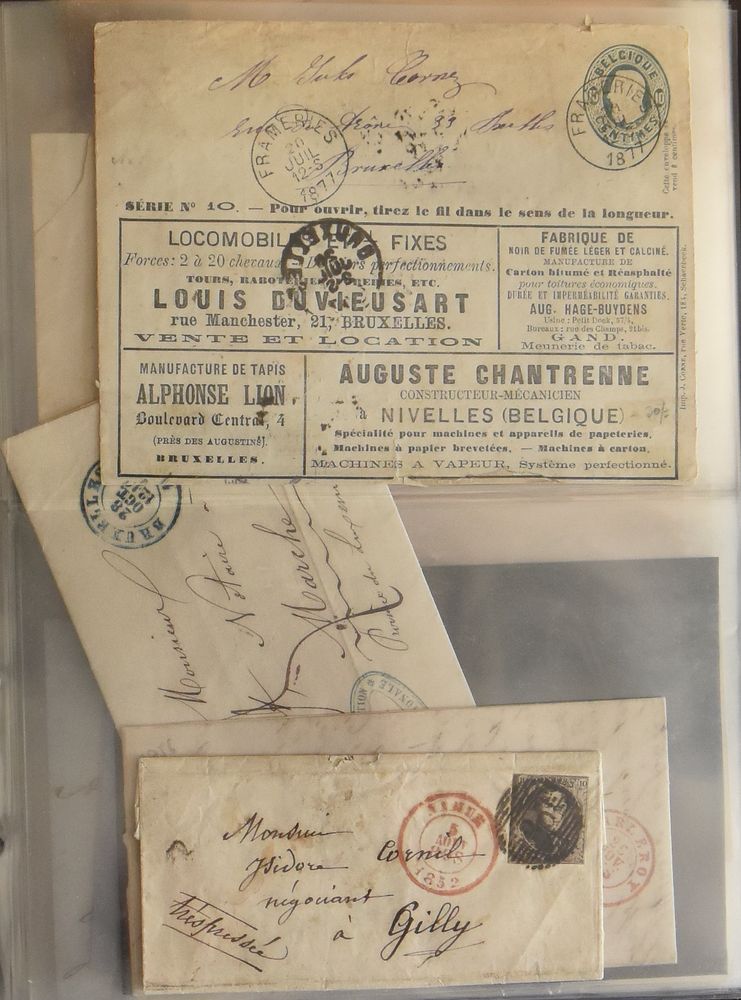 M Jules Cornez
33
Bruxelles
FRAMERIES
20
JUIL
12-S
1877
FRAMERIES
1877
BELGIQUE
CENTIMES
SÉRIE No 10. — Pour ouvrir, tirez le fil dans le sens de la longueur.
FIXES
Forces: 2 à 20 chevaux perfectionnements.
TOURS, ETC.
LOUIS DUVIEUSART
rue Manchester, 21, BRUXELLES.
VENTE ET LOCATION
FABRIQUE DE
NOIR DE FUMÉE LÉGER ET CALCINÉ.
MANUFACTURE DE
Carton bitumé et Réasphalté
pour toitures économiques.
DURÉE ET IMPERMÉABILITÉ GARANTIES.
AUG. HAGE-BUYDENS
Usine: Petit Dock,
Bureaux: rue des Champs, 21bis.
GAND.
Meunerie de tabac.
MANUFACTURE DE TAPIS
ALPHONSE LION
Boulevard Central, 4
(PRÈS DES AUGUSTINS).
BRUXELLES.
AUGUSTE CHANTRENNE
CONSTRUCTEUR-MÉCANICIEN
à NIVELLES (BELGIQUE)
Spécialité pour machines et appareils de papeteries.
Machines à papier brevetées. — Machines à carton.
MACHINES A VAPEUR, Système perfectionné.
BRUXELLES
28
OCT
Monsieur
Notaire
Marche
NAMUR
5
1852
Monsieur
Isidore Cornil
négociant
à Gilly
trèspressée